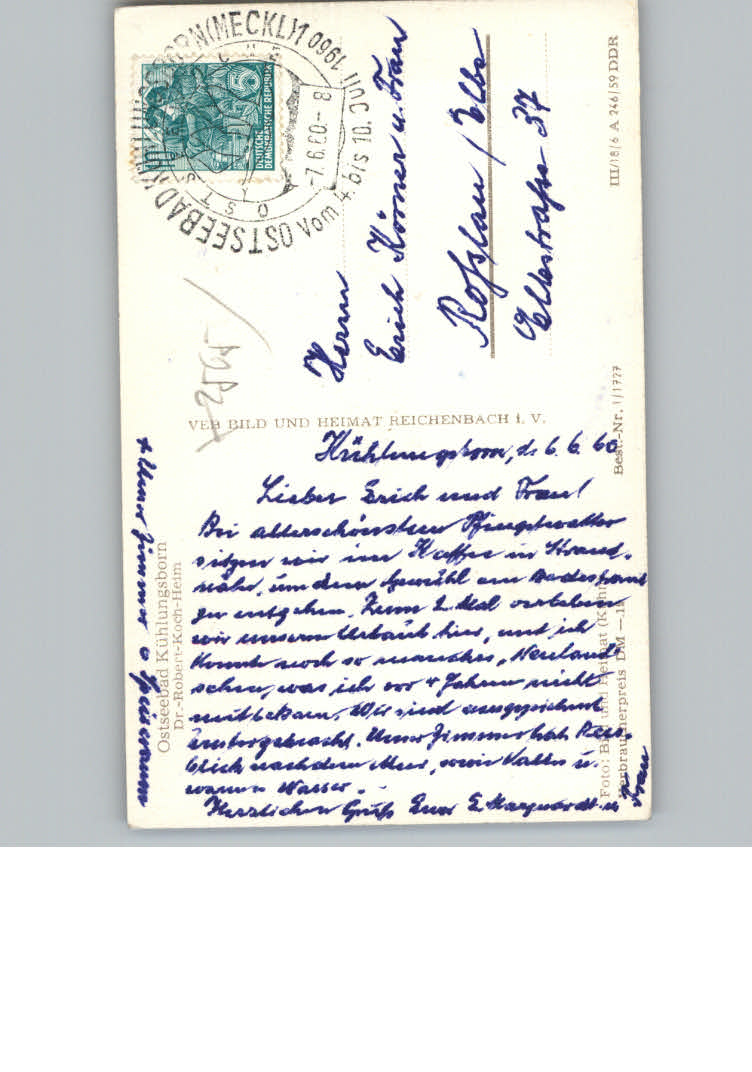 OSTSEEBAD KÜHLUNGSBORN (MECKL) 1
vom 4. bis 10. Juli 1960
-7.6.60.-8
OST
DEUTSCHE
DEMOKRATISCHE REPUBLIK
Herrn
Erich Körner u. Frau
Roßlau / Elbe
Elbstraße 37
III/18/6 A 246/59 DDR
Best.-Nr. 1/1727
VEB BILD UND HEIMAT REICHENBACH i. V.
Kühlungsborn, d. 6.6.60
Lieber Erich und Frau!
Bei allerschönstem Pfingstwetter
sitzen wir im Kaffee in Strand-
nähe, um dem Gewühl am Badestrand
zu entgehen. Zum 2. Mal verleben
wir unsern Urlaub hier, und ich
konnte noch so manches "Neuland"
sehen, was ich vor 4 Jahren nicht
mitbekam. Wir sind ausgezeichnet
untergebracht. Unser Zimmer hat
blick nach dem Meer, sowie kaltes u.
warmes Wasser.
Herzlichen Gruß Euer E. Marquardt u.
Frau
Zimmer o Speiseraum
Ostseebad Kühlungsborn
Dr.-Robert-Koch-Heim
Foto: Bild und Heimat
Verbraucherpreis DM